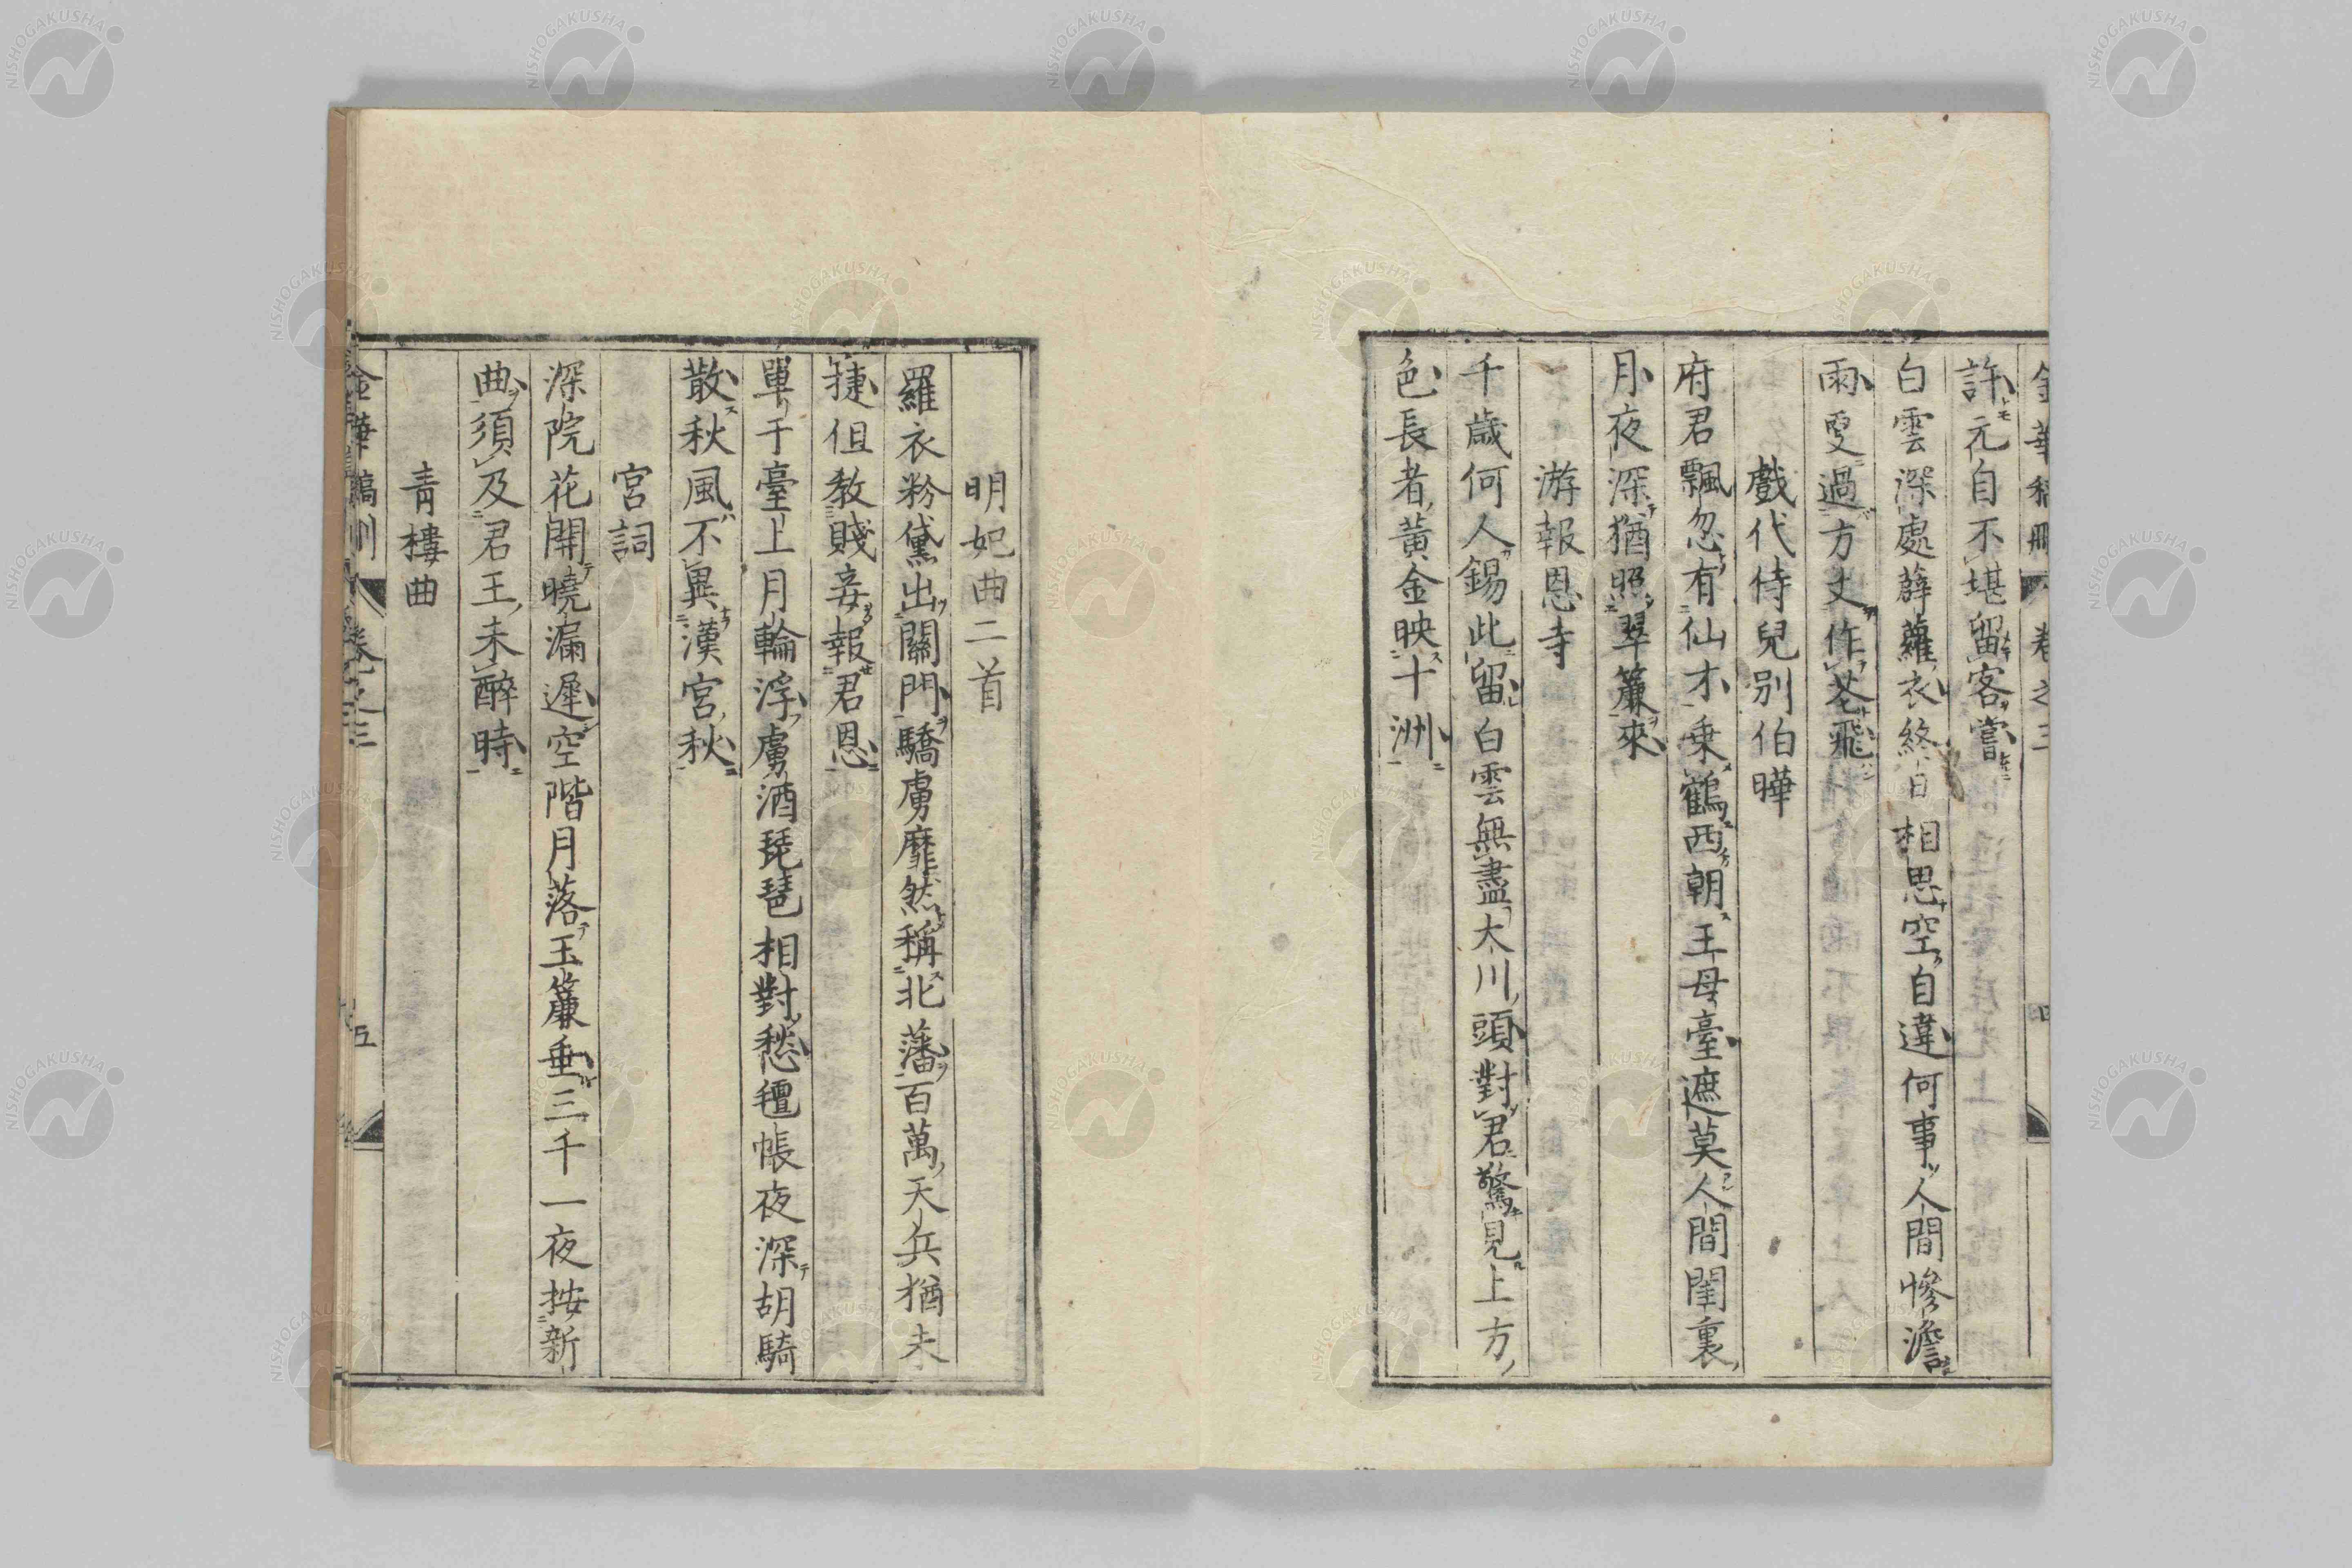 金華稿刪 卷之三 四
許元自不堪留客嘗
白雲深處薜蘿衣終日相思空自違何事人間慘澹
雨更過方丈作花飛
戲代侍兒別伯曄
府君飄忽有仙才乗鶴西朝王母臺遮莫人間閨裏
月夜深猶照翠簾來
游報恩寺
千歲何人錫此留白雲無盡大川頭對君驚見上方
色長者黃金映十洲
明妃曲二首
羅衣粉黛出關門驕虜靡然稱北藩百萬天兵猶未
捷伹教賤妾報君恩
單于臺上月輪浮虜酒琵琶相對愁氊帳夜深胡騎
散秋風不異漢宮秋
宮詞
深院花開曉漏遲空階月落玉簾垂三千一夜按新
曲須及君王未醉時
青樓曲
金華稿刪 卷之三 五
NISHOGAKUSHA